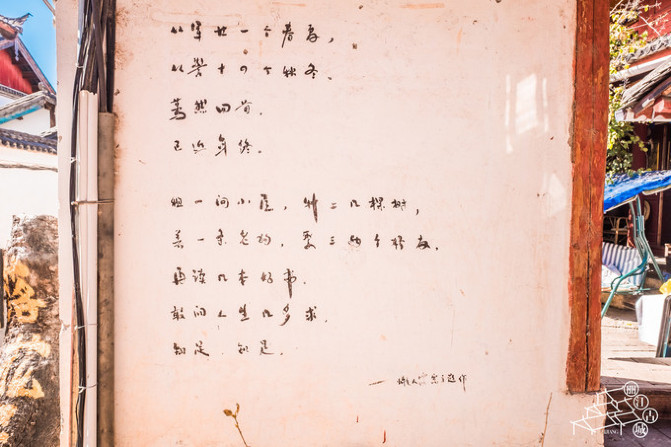 从军廿一个春夏，
从警十四个秋冬。
蓦然回首，
已近年终。
租一间小屋，种二几棵树，
养一条老狗，要三两个好友。
再读几本好书，
敢问人生几多求。
知足、知足。